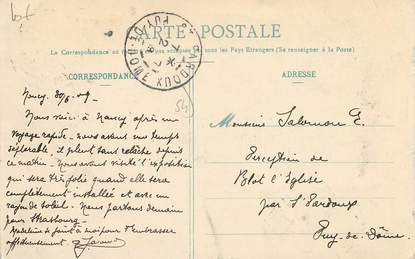 CARTE POSTALE
La Correspondance au recto n'est pas acceptée par tous les Pays Etrangers (Se renseigner à la Poste)
CORRESPONDANCE
ADRESSE
ST PARDOUX
PUY-DE-DÔME
Nancy, 30/6.09.
Nous voici à Nancy après un
voyage rapide. nous avons un temps
il pleut sans relâche depuis
ce matin. Nous avons visité l'exposition
qui sera très jolie quand elle sera
complètement installée et avec un
rayon de soleil. Nous partons demain
pour Strasbourg.
Madeleine se joint à moi pour t'embrasser
affectueusement.
Monsieur Salomon E.
Direction de
Blot l'Eglise
par St Pardoux
Puy-de-Dôme